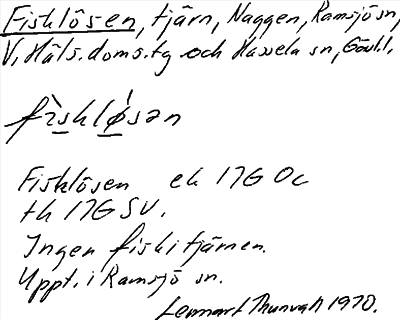 Fisklösen, tjärn, Naggen, Ramsjö sn,
V. Häls. doms.tg och Hassela sn, Gävl.l.
fìskløsən
Fisklösen ek 17G 0c
tk 17G SV.
Ingen fisk i tjärnen.
Uppt. i Ramsjö sn.
Lennart Thunvall 1970.